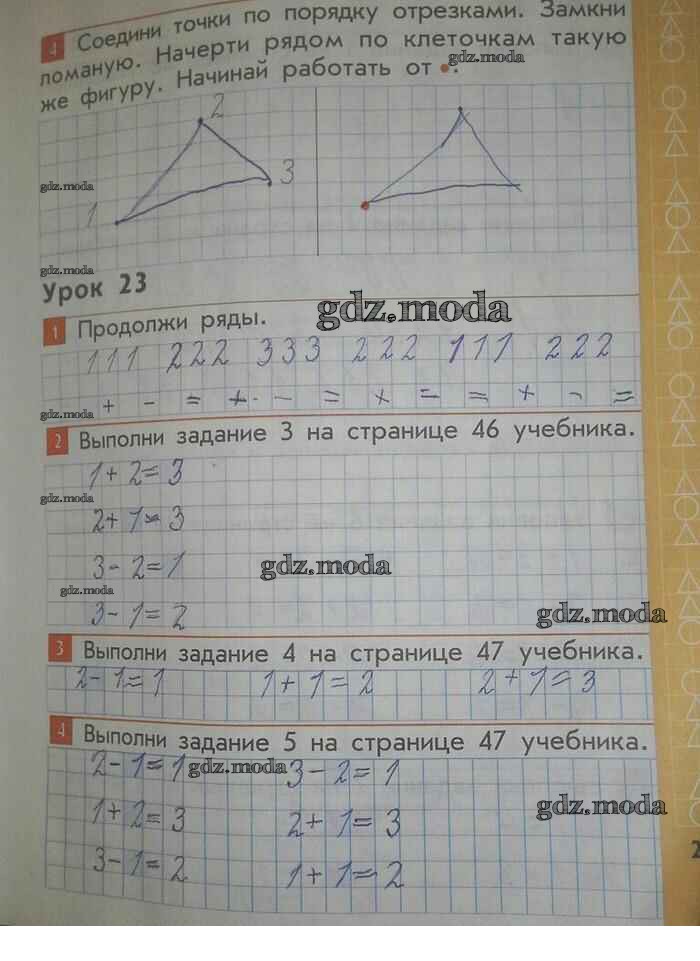 4 Соедини точки по порядку отрезками. Замкни
ломаную. Начерти рядом по клеточкам такую
же фигуру. Начинай работать от •.
gdz.moda
2
3
1
gdz.moda
gdz.moda
Урок 23
gdz.moda
1 Продолжи ряды.
111 222 333 222 111 222
+ - = + - = + = = + - =
gdz.moda
2 Выполни задание 3 на странице 46 учебника.
1+2=3
gdz.moda
2+1=3
3-2=1
gdz.moda
gdz.moda
3-1=2
gdz.moda
3 Выполни задание 4 на странице 47 учебника.
2-1=1 1+1=2 2+1=3
4 Выполни задание 5 на странице 47 учебника.
2-1=1 gdz.moda 3-2=1
1+2=3 2+1=3
gdz.moda
3-1=2 1+1=2
2